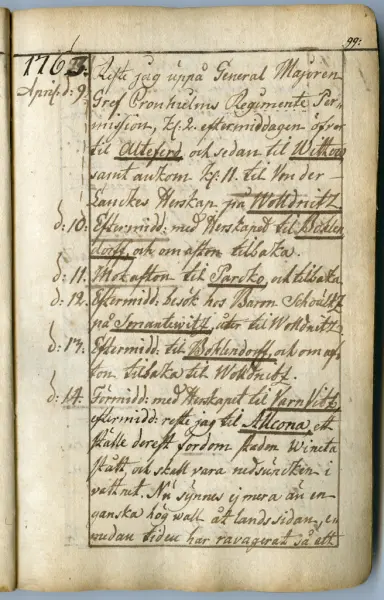 99:
1763:
April d: 9: Reste jag uppå General Majoren
Gref Cronhielms Regemente Per=
mission, Kl: 2. eftermiddagen öfver
til Alteferd, och sedan til Wittow
samt ankom Kl: 11. til Von der
Lanckes Herskap på Woldnitz
d: 10: Eftermidd: med Herskapet til Bohlen
dorff, och om afton tilbaka.
d: 11. Mot afton til Parcko, och tilbaka
d: 12. Eftermidd: besök hos Baron Schoultz
på Smantewitz, åter til Woldnitz
d: 13. Eftermidd: til Bohlendorff, och om af=
ton tilbaka til Woldnitz.
d: 14. Förmidd: med Herskapet til Varnkevitz,
eftermidd: reste jag til Altcona, ett
ställe derest fordom staden Wineta
stått, och skall vara nedsuncken i
vattnet. Nu synnes ej mera än en
ganska hög wall åt landssidan, en
medan tiden har ravagerat så ett